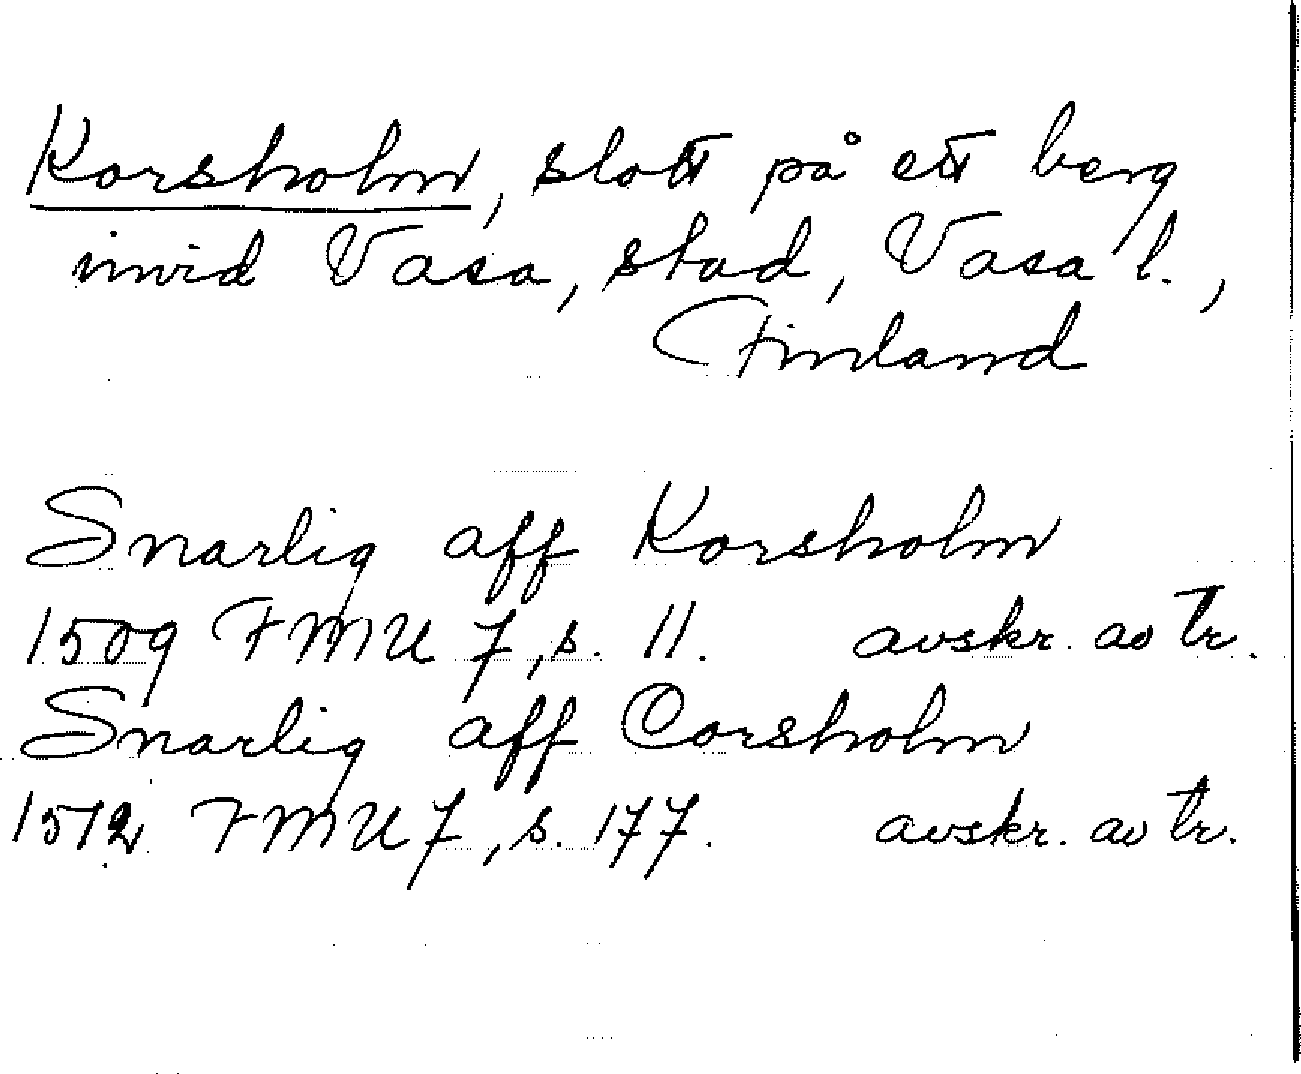 Korsholm, slott på ett berg
invid Vasa, stad, Vasa l.,
Finland
Snarlig aff Korsholm
1509 FMU 7, s. 11. avskr. av tr.
Snarlig aff Corsholm
1512 FMU 7, s. 177. avskr. av tr.